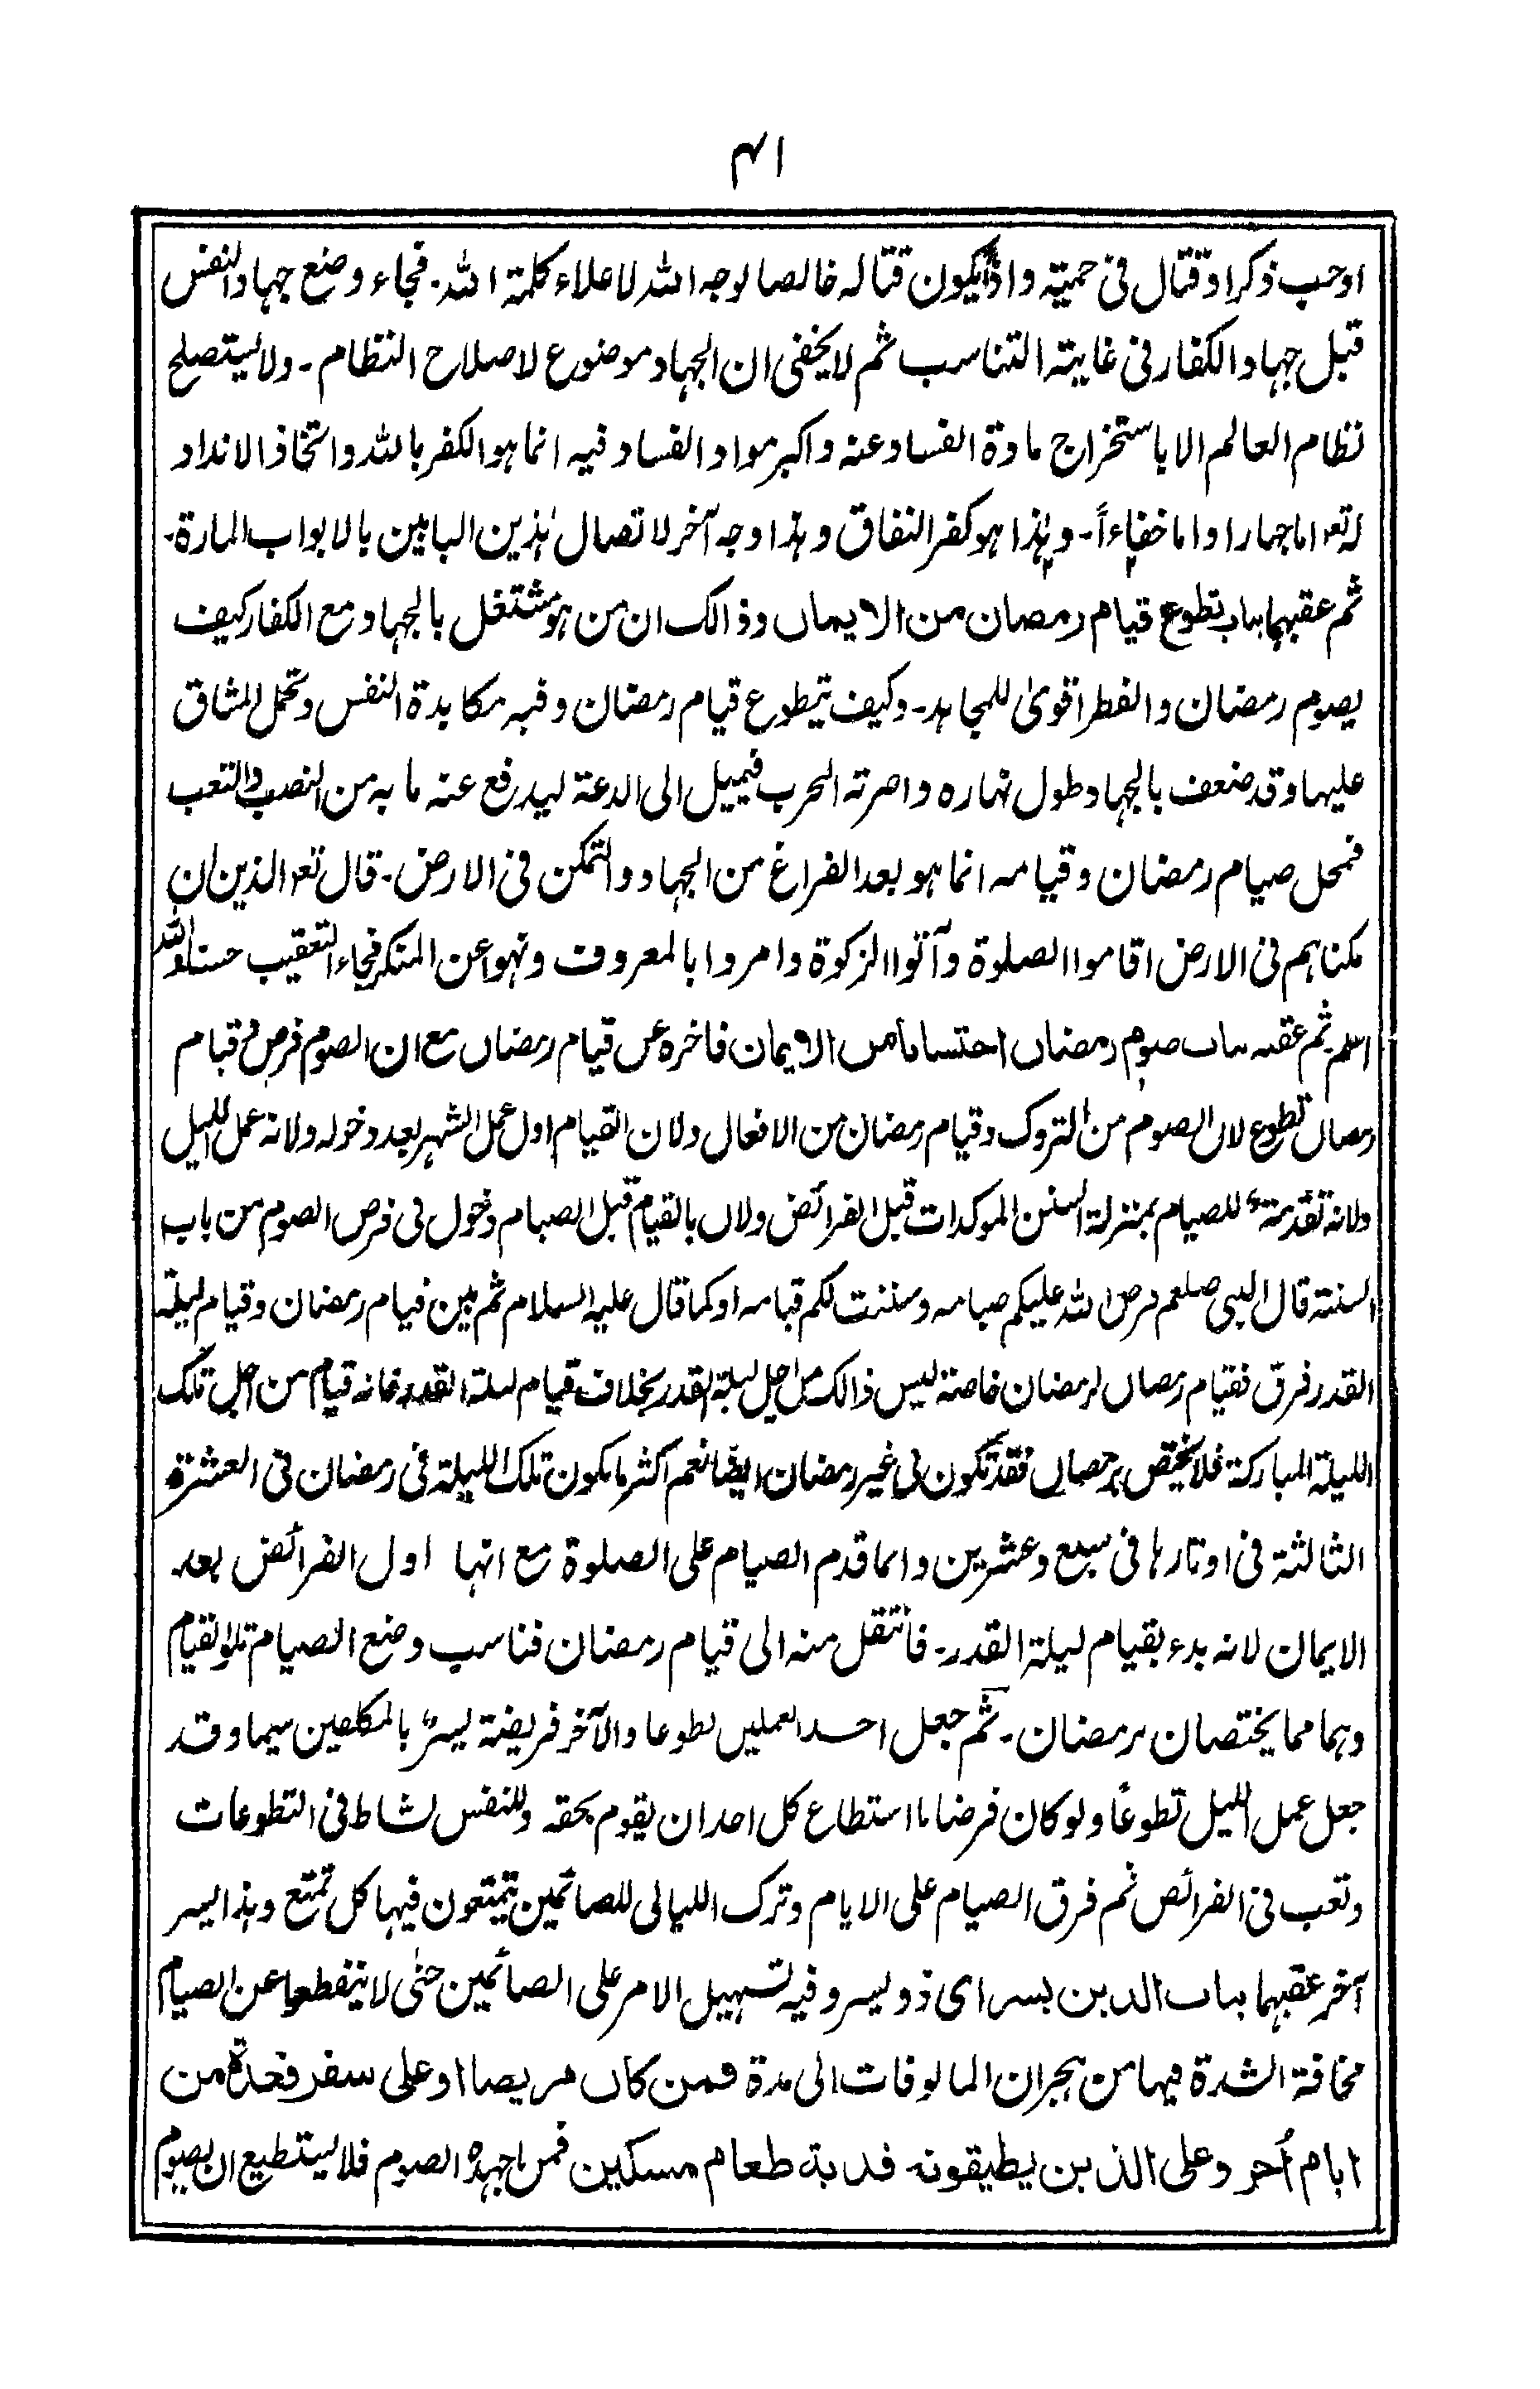 ٤١
او حب ذكر او قتال فى حمية واذا يكون قتاله خالصا لوجه الله لاعلاء كلمة الله۔ فجاء وضع جهاد النفس
قبل جهاد الكفار فى غاية التناسب ثم لا يخفى ان الجهاد موضوع لاصلاح النظام۔ ولا يستصلح
نظام العالم الا باستخراج مادة الفساد عنه واكبر مواد الفساد فيه انما هو الكفر بالله واتخاذ الانداد
له تعه اما جهارا واما خفاءاً۔ وهذا هو كفر النفاق وهذا وجه آخر لاتصال هذين البابين بالابواب المارة۔
ثم عقبهما بباب تطوع قيام رمضان من الايمان وذالك ان من هو مشتغل بالجهاد مع الكفار كيف
يصوم رمضان والفطر اقوىٰ للمجاهد۔ وكيف يتطوع قيام رمضان وفيه مكابدة النفس وتحمل المشاق
عليها وقد ضعف بالجهاد طول نهاره واصرته الحرب فيميل الى الدعة ليدفع عنه ما به من النصب والتعب
فمحل صيام رمضان وقيامه انما هو بعد الفراغ من الجهاد والتمكن فى الارض۔ قال تعه الذين ان
مكناهم فى الارض اقاموا الصلوة وآتوا الزكوة وامروا بالمعروف ونهوا عن المنكر فجاء التعقيب حسنا والله
اعلم۔ ثم عقبه بباب صوم رمضان احتسابا من الايمان فاخره عن قيام رمضان مع ان الصوم فرض وقيام
رمضان تطوع لان الصوم من التروك وقيام رمضان من الافعال ولان القيام اول عمل الشهر بعد دخوله ولانه عمل الليل
ولانه تقدمة للصيام بمنزلة السنن الموكدات قبل الفرائض ولان بالقيام قبل الصيام دخول فى فرض الصوم من باب
السنة قال النبى صلعم فرض الله عليكم صيامه وسننت لكم قيامه او كما قال عليه السلام ثم بين قيام رمضان وقيام ليلة
القدر فرق فقيام رمضان لرمضان خاصة ليس ذالك من اجل ليلة القدر بخلاف قيام ليلة القدر فانه قيام من اجل تلك
الليلة المباركة فلا يختص برمضان فقد تكون فى غير رمضان ايضا نعم اكثر ما يكون تلك الليلة فى رمضان فى العشرة
الثالثة فى اوتارها فى سبع وعشرين وانما قدم الصيام على الصلوة مع انها اول الفرائض بعد
الايمان لانه بدء بقيام ليلة القدر۔ فانتقل منه الى قيام رمضان فناسب وضع الصيام تلو القيام
وهما مما يختصان برمضان۔ ثم جعل احد العملين تطوعا والآخر فريضة ليسرٍ بالمكلفين سيما وقد
جعل عمل الليل تطوعاً ولو كان فرضا ما استطاع كل احد ان يقوم بحقه وللنفس نشاط فى التطوعات
وتعب فى الفرائض ثم فرق الصيام على الايام وترك الليالى للصائمين يتمتعون فيها كل تمتع وهذا يسر
آخر عقبهما بباب الدين يسر اى ذو يسر وفيه تسهيل الامر على الصائمين حتى لا ينقطعوا عن الصيام
مخافة الشدة فيها من هجران المالوفات الى مدة فمن كان مريضا او على سفر فعدة من
ايام أُخر وعلى الذين يطيقونه فدية طعام مسكين فمن اجهده الصوم فلا يستطيع ان يصوم